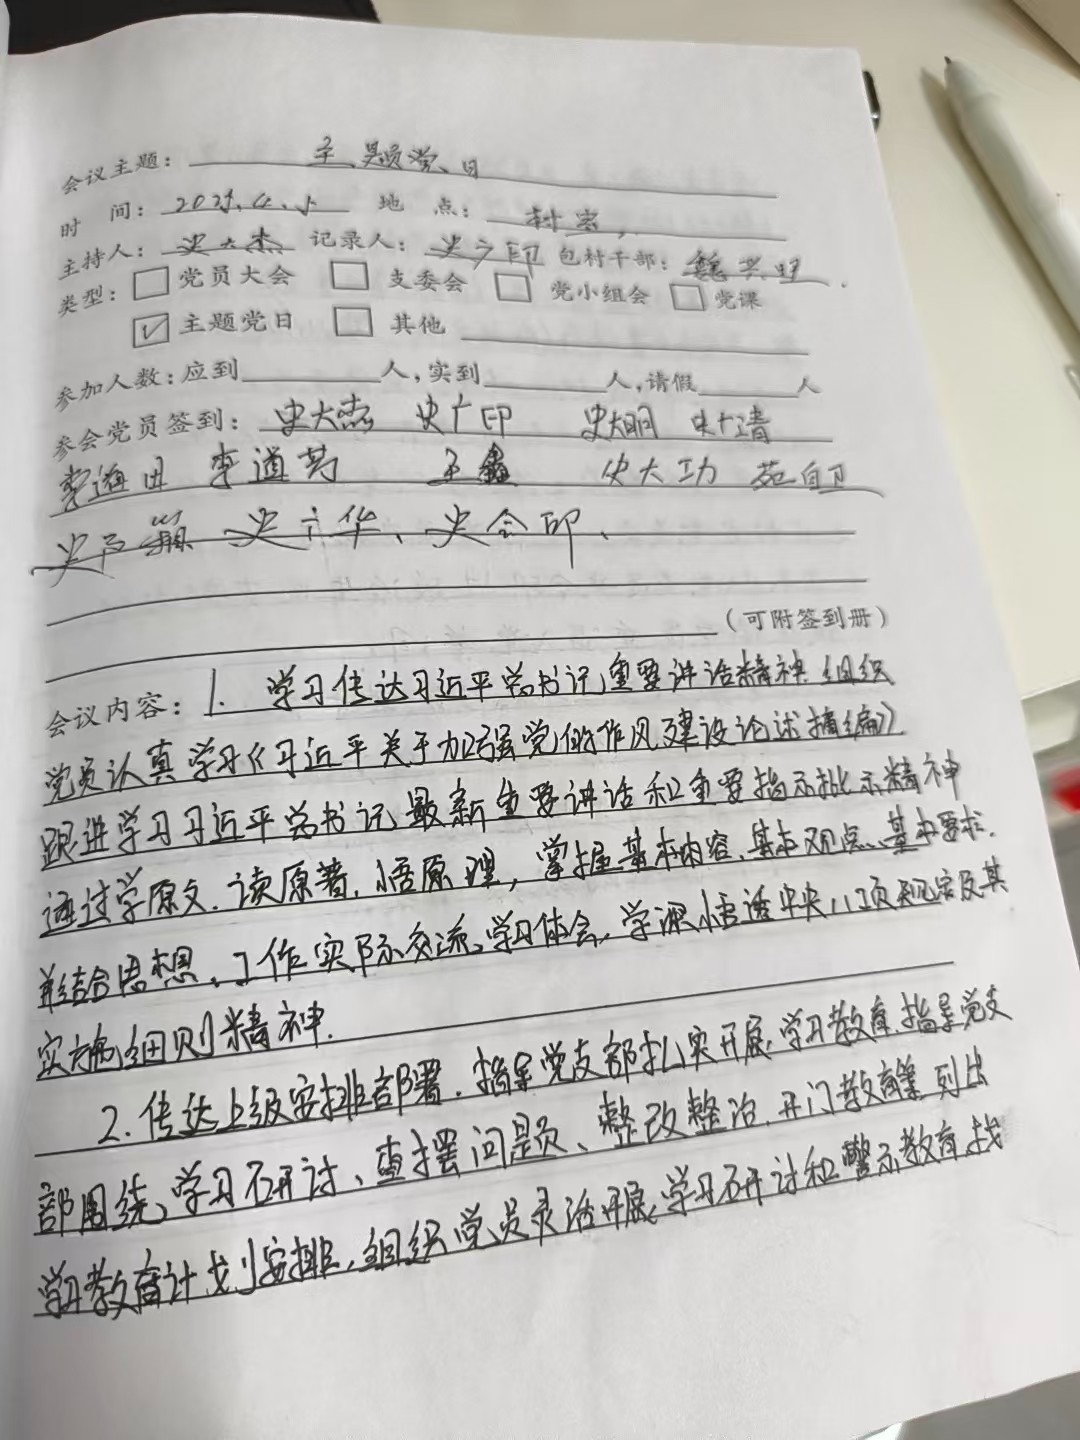 会议主题：主题党日
时 间：2025.4.5 地 点：村室
主持人：史大杰 记录人：史广印 包村干部：魏兴明
类型：□党员大会 □支委会 □党小组会 □党课
☑主题党日 □其他
参加人数：应到 人，实到 人，请假 人
参会党员签到：史大杰 史广印 史明 史清
李海田 李道芳 王鑫 史大功 苑自卫
史 史广华、史会印、
（可附签到册）
会议内容：1. 学习传达习近平总书记重要讲话精神 组织
党员认真学习《习近平关于加强党的作风建设论述摘编》
跟进学习习近平总书记最新重要讲话和重要指示批示精神
通过学原文、读原著、悟原理，掌握基本内容、基本观点、基本要求.
并结合思想、工作实际交流学习体会，学深悟透中央八项规定及其
实施细则精神.
2. 传达上级安排部署，指导党支部扎实开展学习教育，指导党支
部围绕学习研讨、查摆问题、整改整治、开门教育等列出
学习教育计划安排，组织党员灵活开展学习研讨和警示教育，找